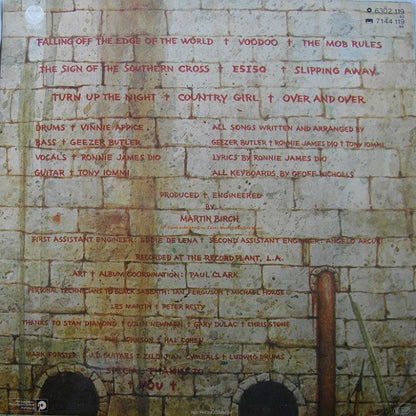 6302 119
7144 119
FALLING OFF THE EDGE OF THE WORLD † VOODOO † THE MOB RULES
THE SIGN OF THE SOUTHERN CROSS † E5150 † SLIPPING AWAY
TURN UP THE NIGHT † COUNTRY GIRL † OVER AND OVER
DRUMS † VINNIE APPICE
BASS † GEEZER BUTLER
VOCALS † RONNIE JAMES DIO
GUITAR † TONY IOMMI
ALL SONGS WRITTEN AND ARRANGED BY
GEEZER BUTLER † RONNIE JAMES DIO † TONY IOMMI
LYRICS BY RONNIE JAMES DIO
ALL KEYBOARDS BY GEOFF NICHOLLS
PRODUCED † ENGINEERED
BY
MARTIN BIRCH
FIRST ASSISTANT ENGINEER: EDDIE DE LENA † SECOND ASSISTANT ENGINEER: ANGELO ARCURI
RECORDED AT THE RECORD PLANT, L.A.
ART † ALBUM COORDINATION: PAUL CLARK
PERSONAL TECHNICIANS TO BLACK SABBATH: IAN FERGUSON † MICHAEL HOWSE
LES MARTIN † PETER RESTY
THANKS TO STAN DIAMOND † COLIN NEWMAN † GARY DULAC † CHRIS STONE
JOHNSON † HAL COHEN
MARK FORSTER † J.D. GUITARS † ZILDJIAN CYMBALS † LUDWIG DRUMS
SPECIAL THANKS TO
† YOU †